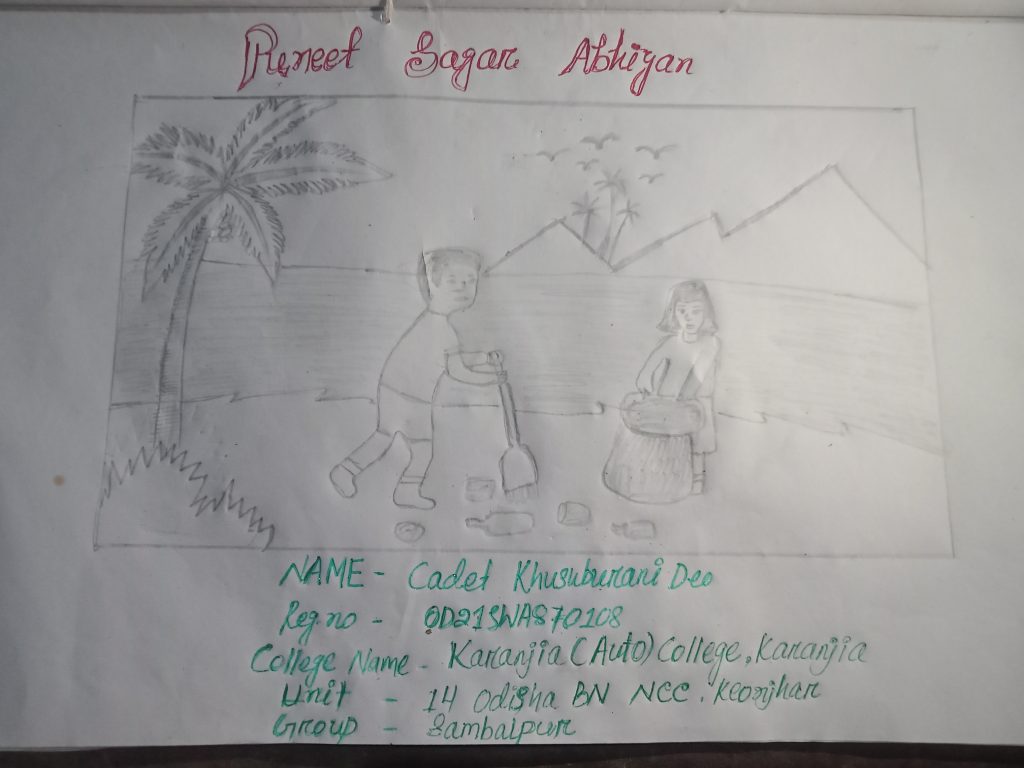 Puneet Sagar Abhiyan
NAME - Cadet Khusuburani Deo
Reg.no - OD21SWA870108
College Name - Karanjia (Auto) College, Karanjia
Unit - 14 Odisha BN NCC, Keonjhar
Group - Sambalpur